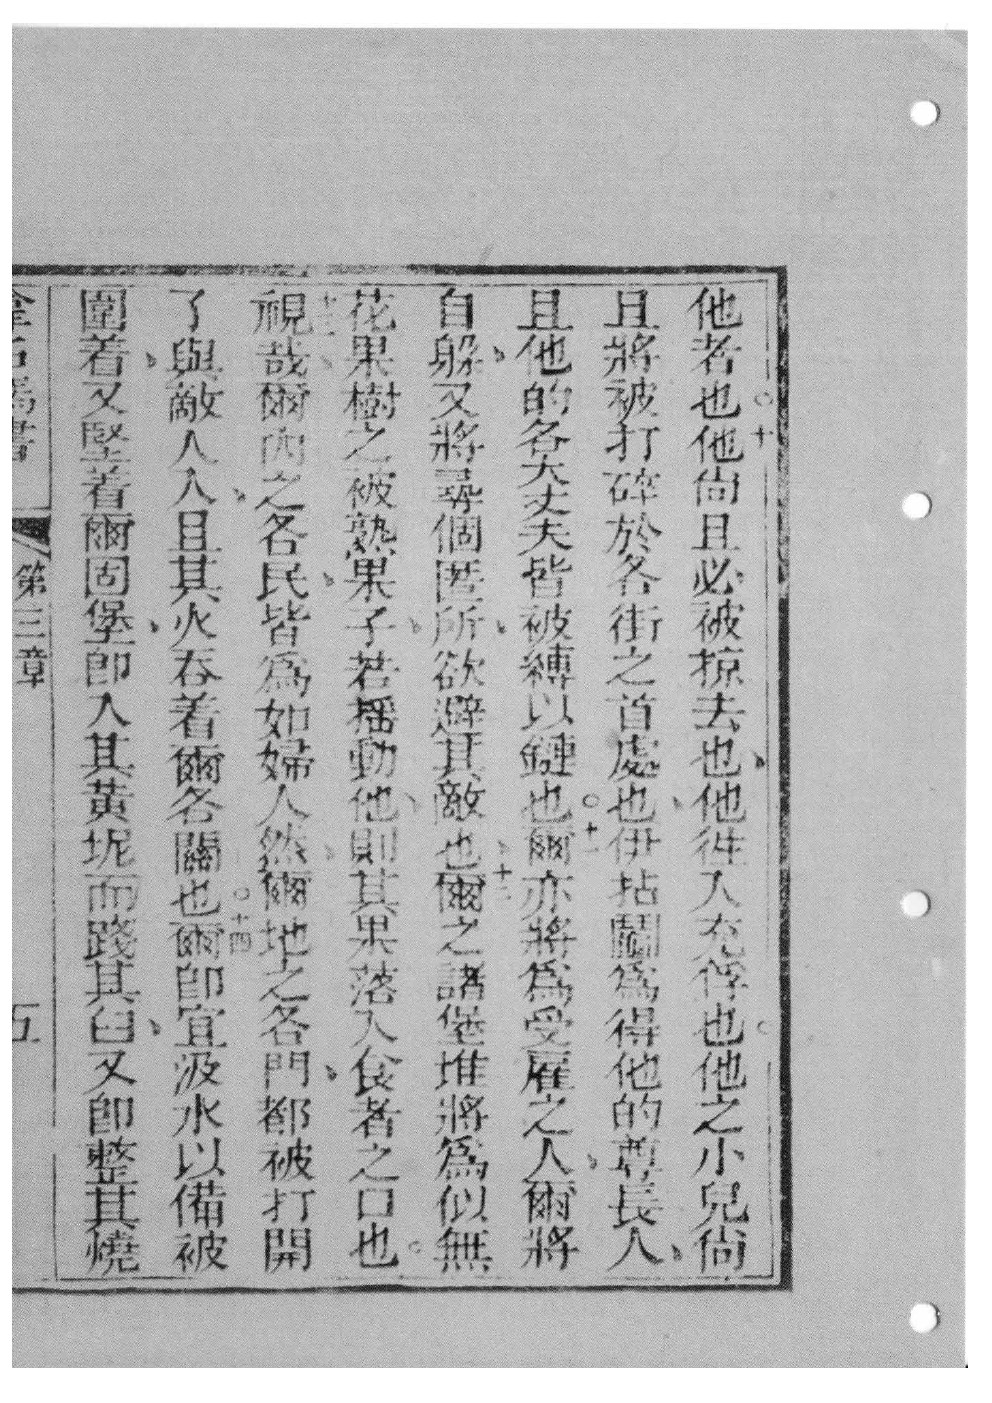 他者也○十他尙且必被掠去也、他徃入充俘也○他之小兒尙
且將被打碎於各街之首處也、伊拈鬮爲得他的尊長人、
且他的各大丈夫皆被縛以鏈也○十一爾亦將爲受雇之人、爾將
自躱、又將尋個匿所、欲避其敵也、十二爾之諸堡堆將爲似無
花果樹之被熟果子、若搖動他、則其果落入食者之口也○
十三視哉、爾內之各民、皆爲如婦人然、爾地之各門、都被打開
了與敵人入、且其火吞着爾各關也○十四爾卽宜汲水以備被
圍着、又堅着爾固堡、卽入其黃坭而踐其臼、又卽整其燒
書 第三章 五